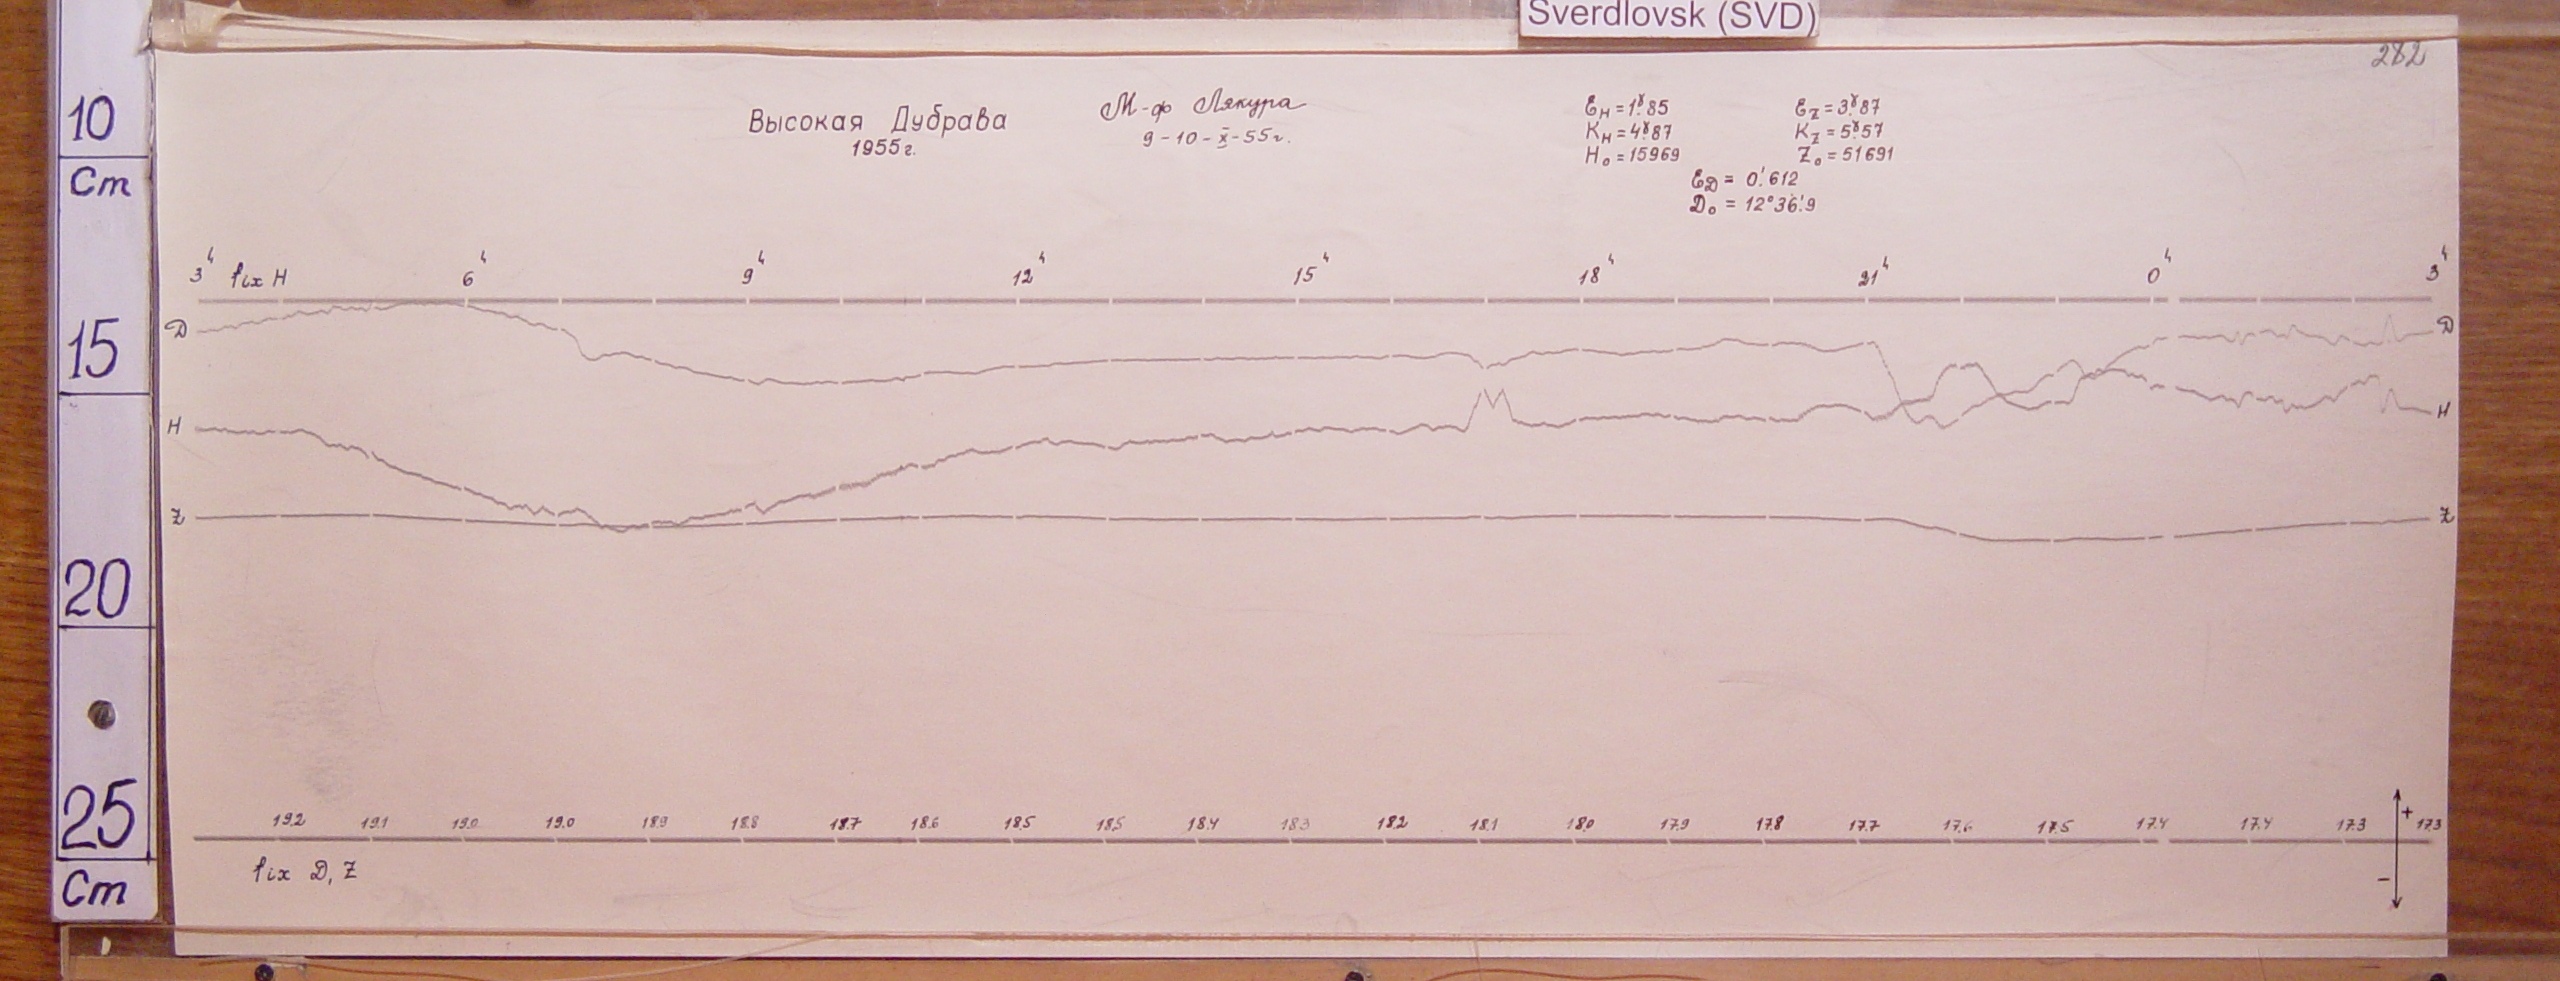 Sverdlovsk (SVD)
282
10
Cm
15
20
25
Cm
Высокая Дубрава
1955г.
М-ф Лякура
9-10-X-55г.
ℰH = 1ˠ.85
KH = 4ˠ.87
H₀ = 15969
ℰZ = 3ˠ.87
KZ = 5ˠ.57
Z₀ = 51691
ℰD = 0'.612
D₀ = 12°36'.9
3ʰ fix H 6ʰ 9ʰ 12ʰ 15ʰ 18ʰ 21ʰ 0ʰ 3ʰ
D D
H H
Z Z
19.2 19.1 19.0 19.0 18.9 18.8 18.7 18.6 18.5 18.5 18.4 18.3 18.2 18.1 18.0 17.9 17.8 17.7 17.6 17.5 17.4 17.4 17.3 + 17.3
fix D, Z −